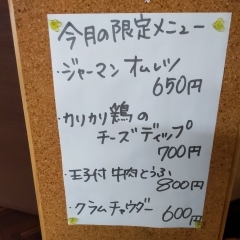 今月の限定メニュー
・ジャーマン オムレツ
650円
・カリカリ鶏の
チーズディップ
700円
・玉子付 牛肉とうふ
800円
・クラムチャウダー
600円